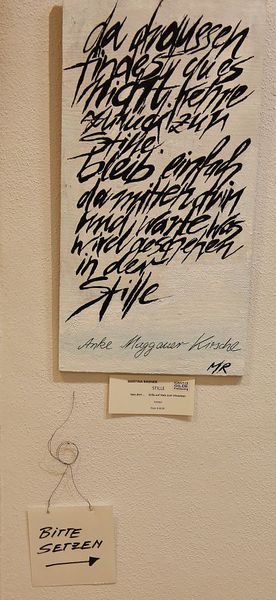 da draussen
findest du es
nicht. kehre
zurück zur
Stille.
bleib einfach
da mitten drin
und warte, was
wird geschehen
in der
Stille
Anke Maggauer Kirsche
MR
STILLE
BITTE
SETZEN